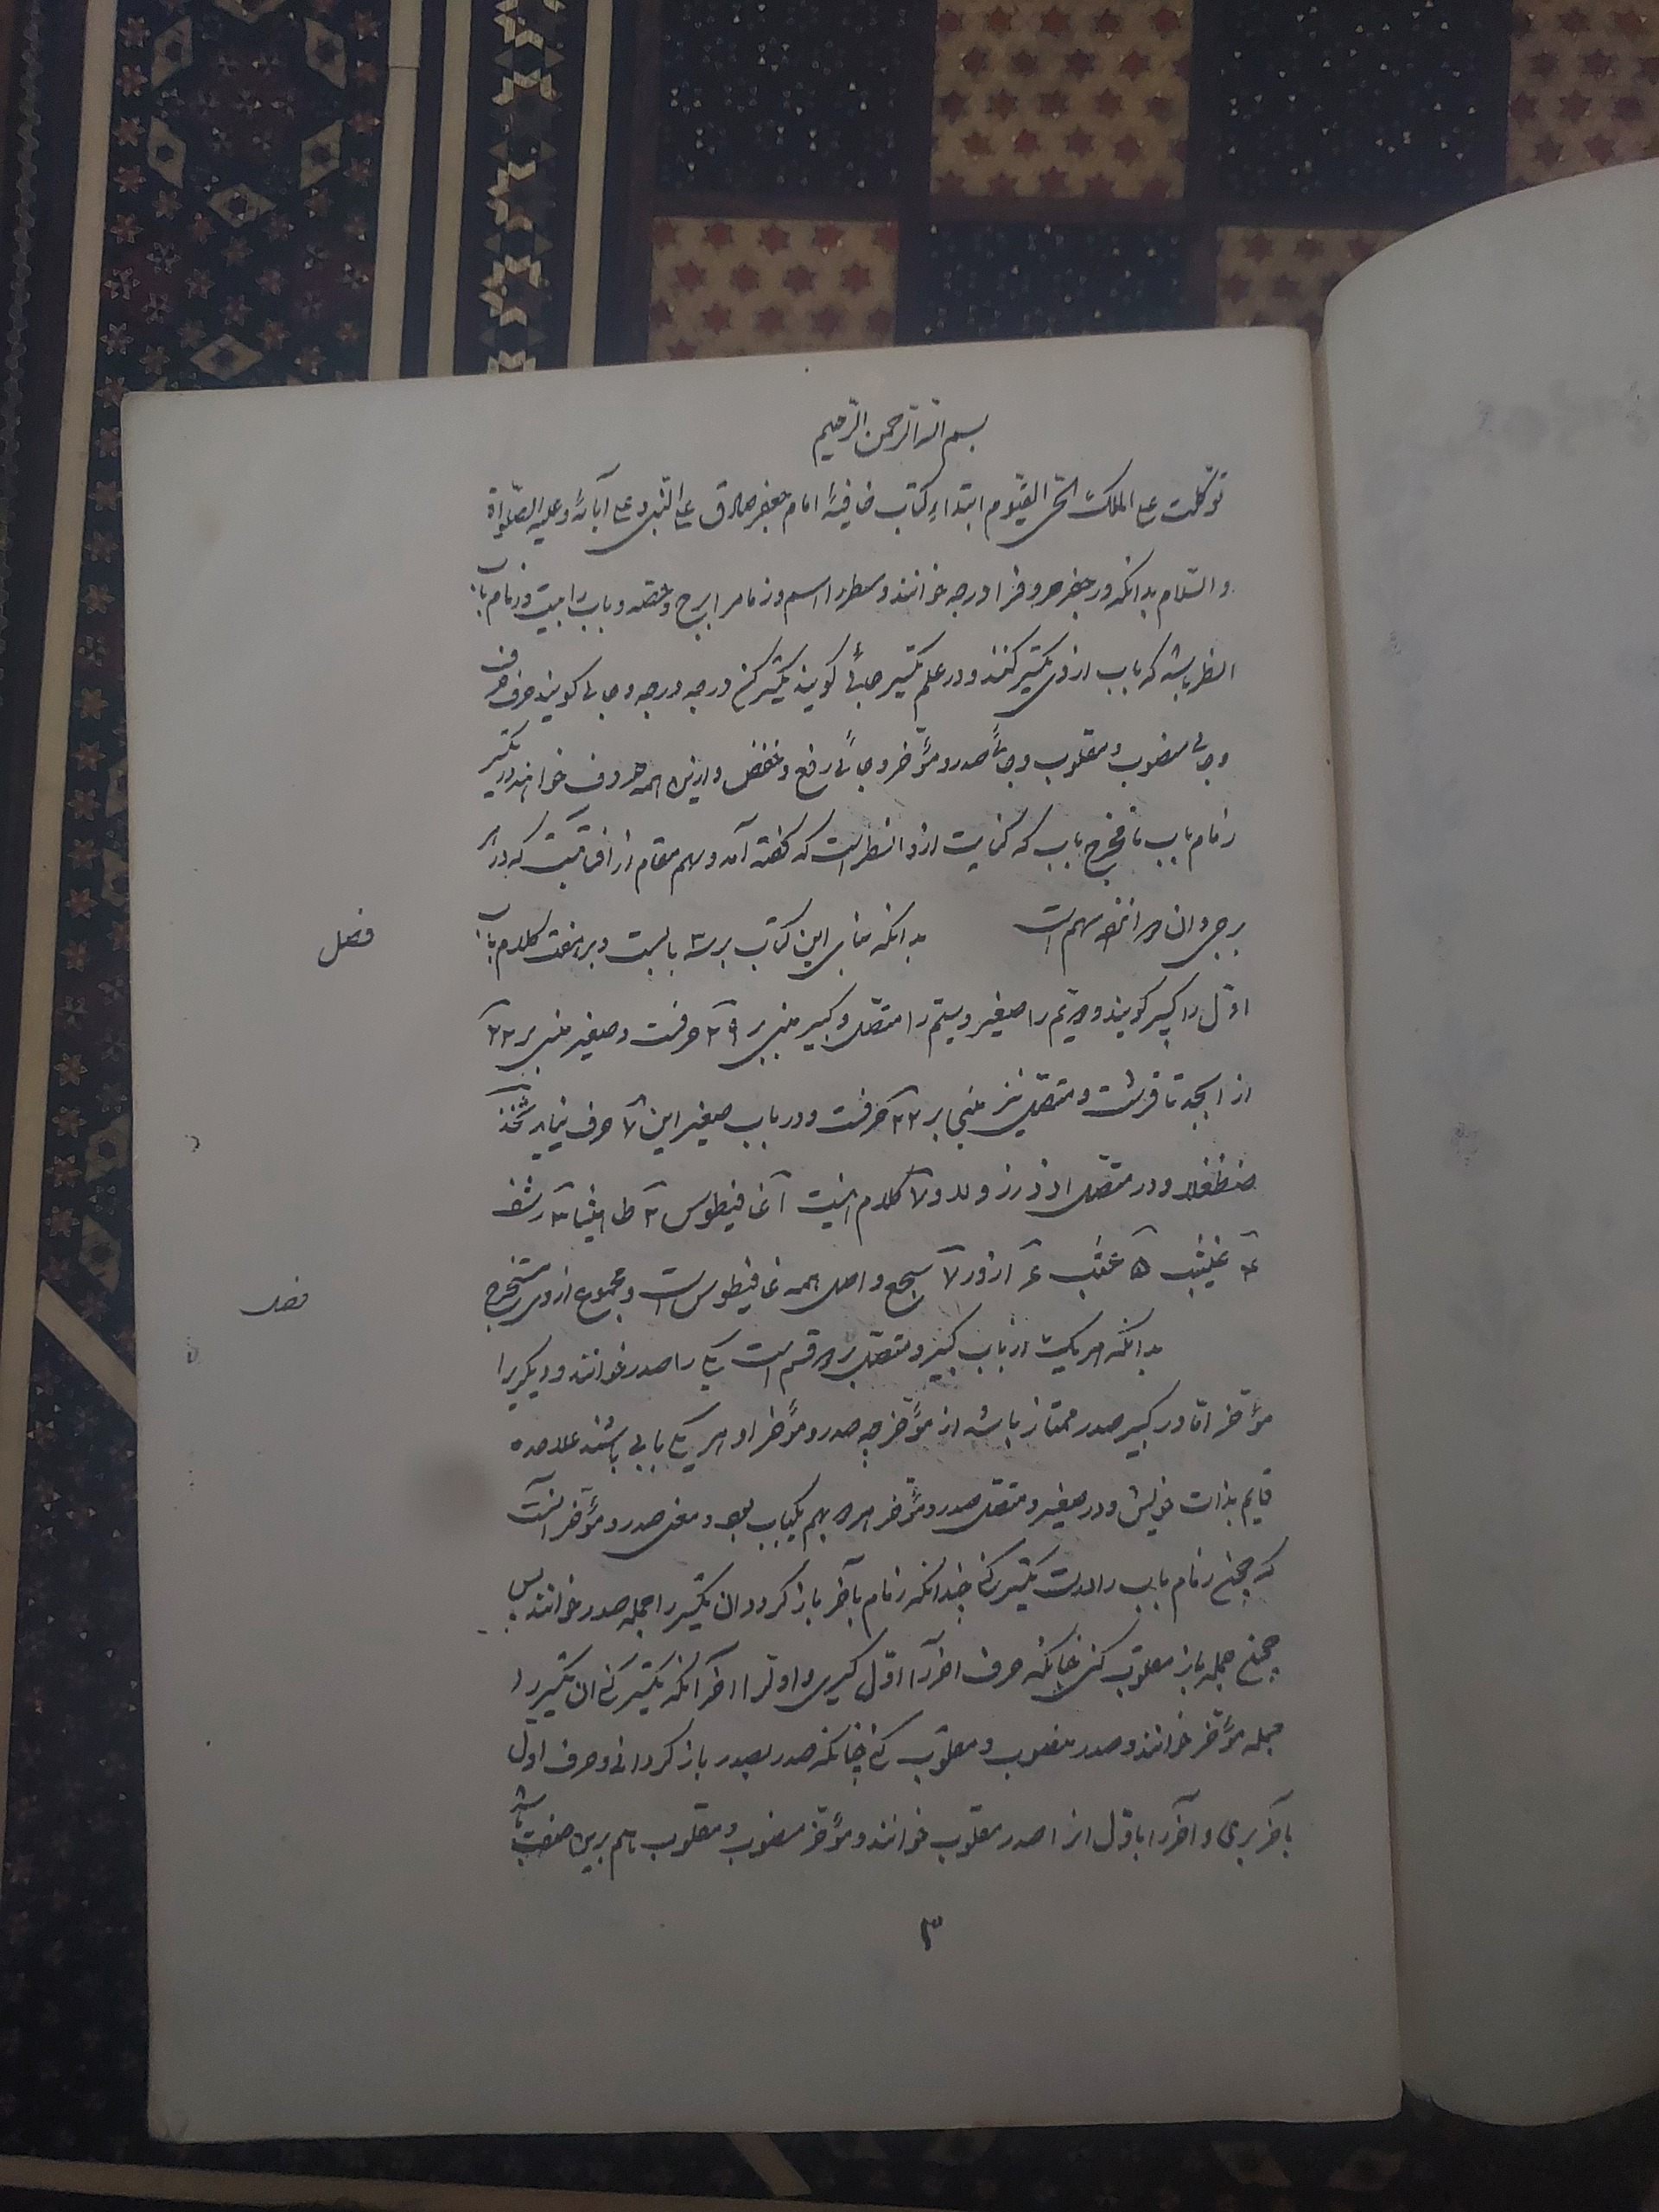 بسم الله الرحمن الرحیم
توکلت علی الملک الحی القیوم ابتداء کتاب خافیهٔ امام جعفر صادق علی النبی و علی آبائه و علیه الصلوة
و السلام بدانکه در جفر حروف را درجه خوانند و سطر را اسم و زمام را برج و حصه و باب را بیت و زمام باب
انظر باشد که باب ازوی تکسیر کنند و در علم تکسیر جائی گویند تکسیر کن درجه درجه و جائی گویند حرف حرف
و جائی منصوب و مقلوب و جائی صدر و مؤخر و جائی رفع و خفض و ازین همه حروف خواهند در تکسیر
زمام باب تا مخرج باب که کنایت از انظر است که گفته آمد و سهم مقام از
برجی و ان سهم است بدانکه بنای این کتاب بر سه بابست و بر هفت کلام باب
فصل
اول را کبیر گویند و دویم را صغیر و سیم را متصل و کبیر مبنی بر ۲۹ حرفست و صغیر مبنی بر ۲۲
از ابجد تا قرشت و متصل نیز مبنی بر ۲۲ حرفست و در باب صغیر این ۷ حرف نیاید ثخذ
ضظغلا و در متصل ا د ذ ر ز و لا و ۷ کلام اینست ۱ غافیطوس ۲ ۳
۴ ۵ ۶ ۷ و اصل همه غافیطوس است و مجموع ازوی مستخرج
فصل
بدانکه هر یک از باب کبیر و متصل بر دو قسم است یکی را صدر خوانند و دیگری را
مؤخر اما در کبیر صدر ممتاز باشد از مؤخر چه صدر و مؤخر او هر یکی بابی باشند علاحده
قایم بذات خویش و در صغیر و متصل صدر و مؤخر هر دو بهم یکباب بود و معنی صدر و مؤخر آنست
که زمام باب راست تکسیر کنی چندانکه زمام بآخر باز گردد ان تکسیر را جمله صدر خوانند پس
جمله باز مقلوب کنی چنانکه حرف آخر را اول گیری و اول را آخر آنکه تکسیر کنی ان تکسیر را
جمله مؤخر خوانند و صدر منصوب و مقلوب کنی چنانکه صدر بصدر باز گردانی و حرف اول
بآخر بری و آخر را باول انرا صدر مقلوب خوانند و مؤخر منصوب و مقلوب هم برین صفت باشد
۳